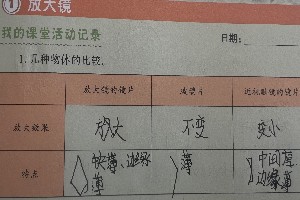 1 放大镜
我的课堂活动记录
日期:
1. 几种物体的比较.
放大镜的镜片 玻璃片 近视眼镜的镜片
放大效果 放大 不变 变小
特点 薄 薄 中间厚
薄 边缘薄